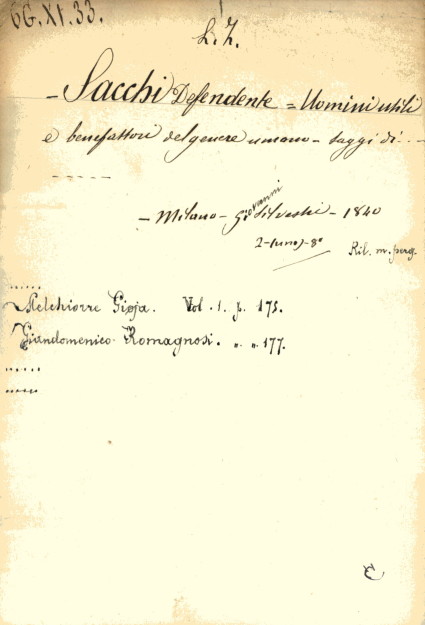 GG.XI.33.
L. Z.
– Sacchi Defendente = Uomini utili
e benefattori del genere umano – saggi di . . . –
– – – – –
– Milano – Giovanni Silvestri – 1840
2– –8°
Ril. m. perg.
.....
Melchiorre Gioja. Vol. 1. p. 175.
Giandomenico Romagnosi. „ „ 177.
.....
.....